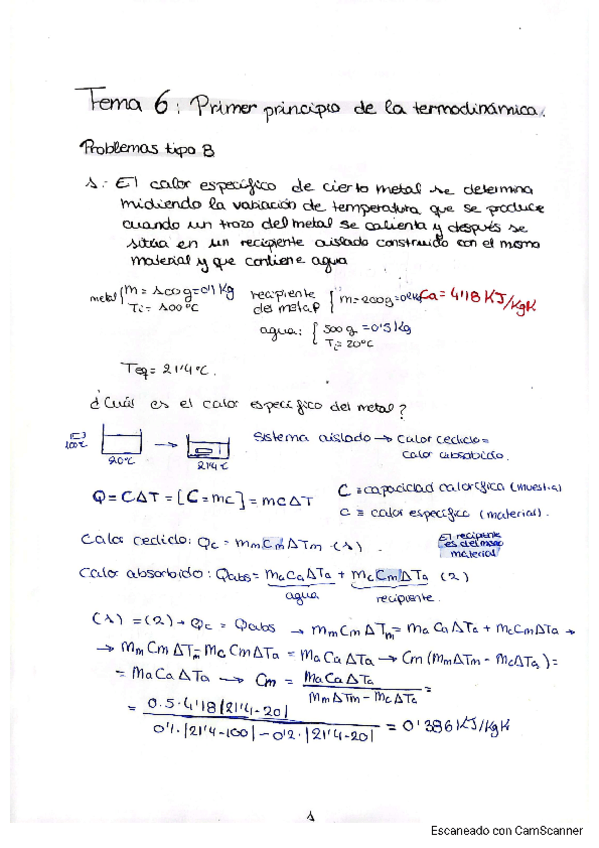 Tema 6: Primer principio de la termodinámica.
Problemas tipo B
1.: El calor específico de cierto metal se determina
midiendo la variación de temperatura que se produce
cuando un trozo del metal se calienta y después se
sitúa en un recipiente aislado construido con el mismo
material y que contiene agua
metal { m = 100g = 0'1 kg
Ti = 100°C
recipiente del metal { m = 200g = 0'2 kg
Ca = 4'18 KJ/KgK
agua: { 500g = 0'5 Kg
Ti = 20°C
Teq = 21'4°C.
¿Cuál es el calor específico del metal?
100°C
20°C
21'4°C
Sistema aislado → Calor cedido =
calor absorbido.
Q = CΔT = [C = mc] = mcΔT
C ≡ capacidad calorífica (muestra)
c ≡ calor específico (material).
Calor cedido: Qc = mm Cm ΔTm · (1).
El recipiente
es del mismo
material
Calor absorbido: Qabs = ma Ca ΔTa + mc Cm ΔTa (2)
agua
recipiente.
(1) = (2) → Qc = Qabs → mm Cm ΔTm = ma Ca ΔTa + mc Cm ΔTa →
→ mm Cm ΔTm - mc Cm ΔTa = ma Ca ΔTa → Cm (mm ΔTm - mc ΔTa) =
= ma Ca ΔTa → Cm = ma Ca ΔTa / mm ΔTm - mc ΔTa =
= 0.5 · 4'18 |21'4 - 20| / 0'1 · |21'4 - 100| - 0'2 · |21'4 - 20| = 0'386 KJ/KgK
1
Escaneado con CamScanner